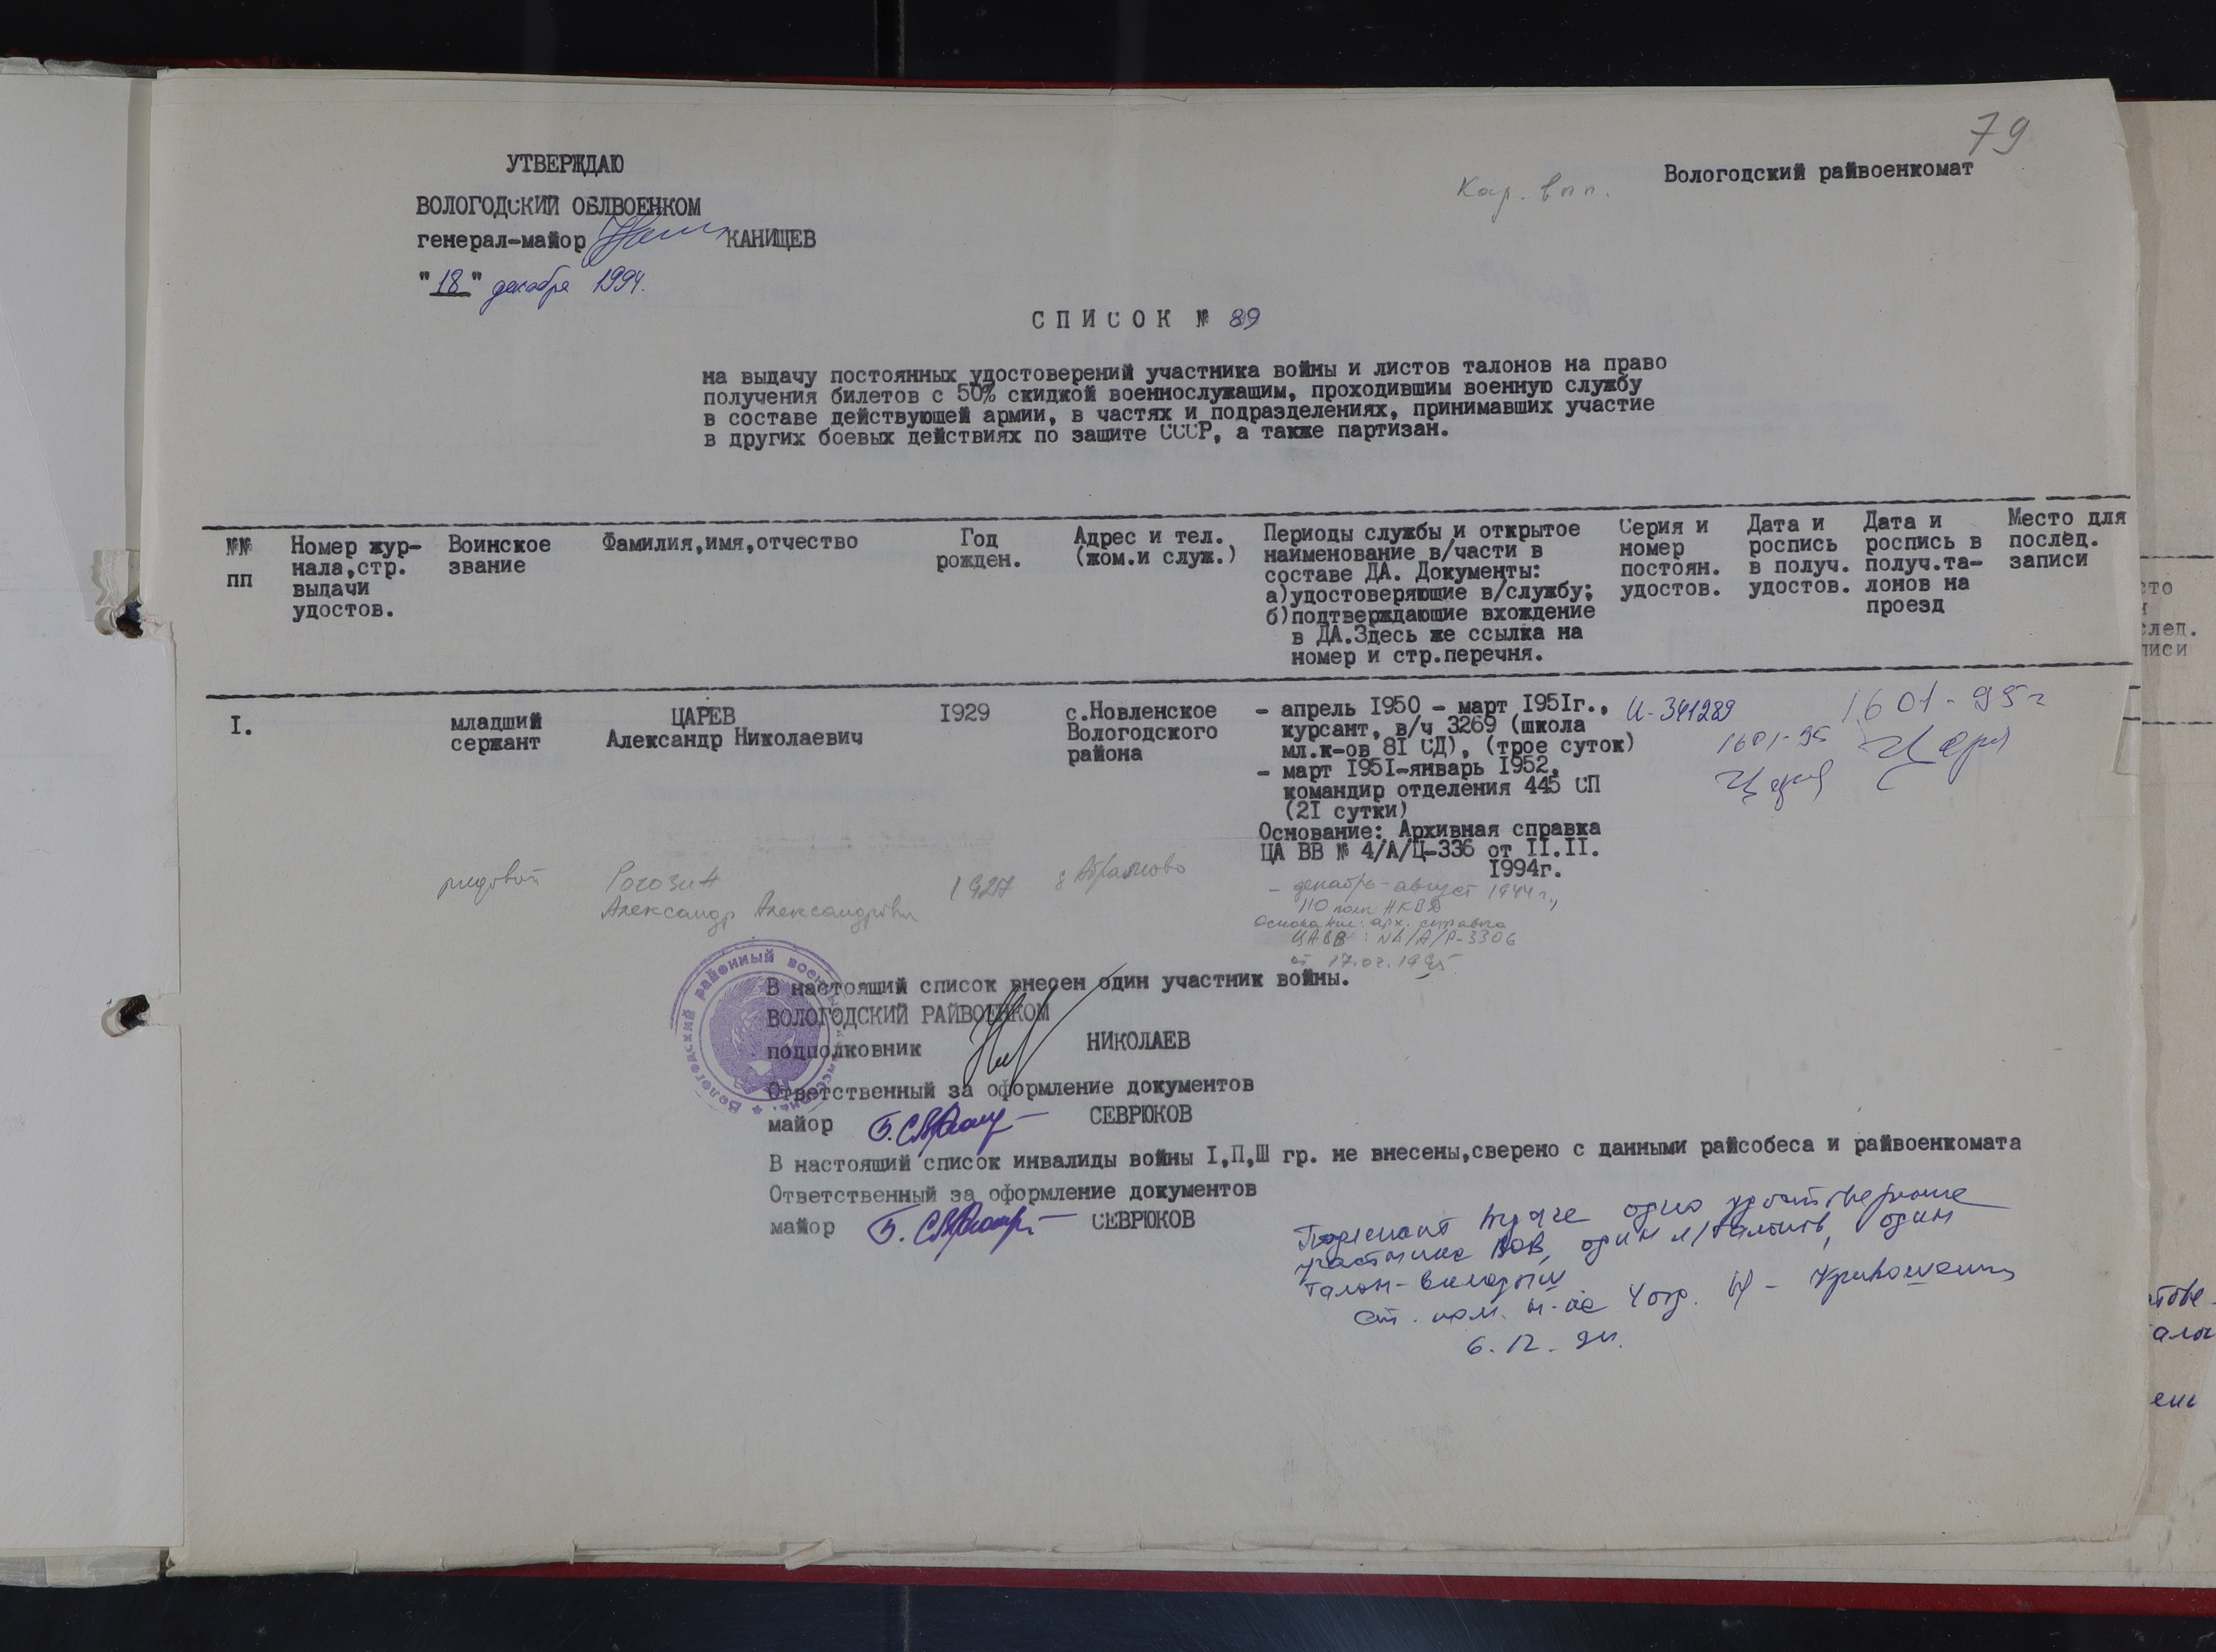 79
Вологодский райвоенкомат
Кар. вып.
УТВЕРЖДАЮ
ВОЛОГОДСКИЙ ОБЛВОЕНКОМ
генерал-майор КАНИЩЕВ
"18" декабря 1994.
СПИСОК № 89
на выдачу постоянных удостоверений участника войны и листов талонов на право
получения билетов с 50% скидкой военнослужашим, проходившим военную службу
в составе действующей армии, в частях и подразделениях, принимавших участие
в других боевых действиях по защите СССР, а также партизан.
№№ пп
Номер жур-
нала,стр.
выдачи
удостов.
Воинское
звание
Фамилия,имя,отчество
Год
рожден.
Адрес и тел.
(жом.и служ.)
Периоды службы и открытое
наименование в/части в
составе ДА. Документы:
а)удостоверяющие в/службу;
б)подтверждающие вхождение
в ДА.Здесь же ссылка на
номер и стр.перечня.
Серия и
номер
постоян.
удостов.
Дата и
роспись
в получ.
удостов.
Дата и
роспись в
получ.та-
лонов на
проезд
Место для
послед.
записи
I.
младший
сержант
ЦАРЕВ
Александр Николаевич
I929
с.Новленское
Вологодского
района
- апрель I950 - март I95Iг.,
курсант, в/ч 3269 (школа
мл.к-ов 8I СД), (трое суток)
- март I95I-январь I952,
командир отделения 445 СП
(2I сутки)
Основание: Архивная справка
ЦА ВВ № 4/А/Ц-336 от II.II.
I994г.
И-341289
1601-95
1601-95г
рядовой
Рогозин
Александр Александрович
1927
д Абрамово
- декабрь-август 1944г.,
110 полк НКВД
Основание: арх. справка
ЦАВВ: №4/А/Р-3306
от 17.02.1995
В настоящий список внесен один участник войны.
ВОЛОГОДСКИЙ РАЙВОЕНКОМ
подполковник НИКОЛАЕВ
Ответственный за оформление документов
майор СЕВРЮКОВ
В настоящий список инвалиды войны I,П,Ш гр. не внесены,сверено с данными райсобеса и райвоенкомата
Ответственный за оформление документов
майор СЕВРЮКОВ
Подлежит выдаче одно удостоверение
участника ВОВ, один л/талонов, один
талон-вкладыш
ст. пом. н-ка 4 отд.
6.12.94.